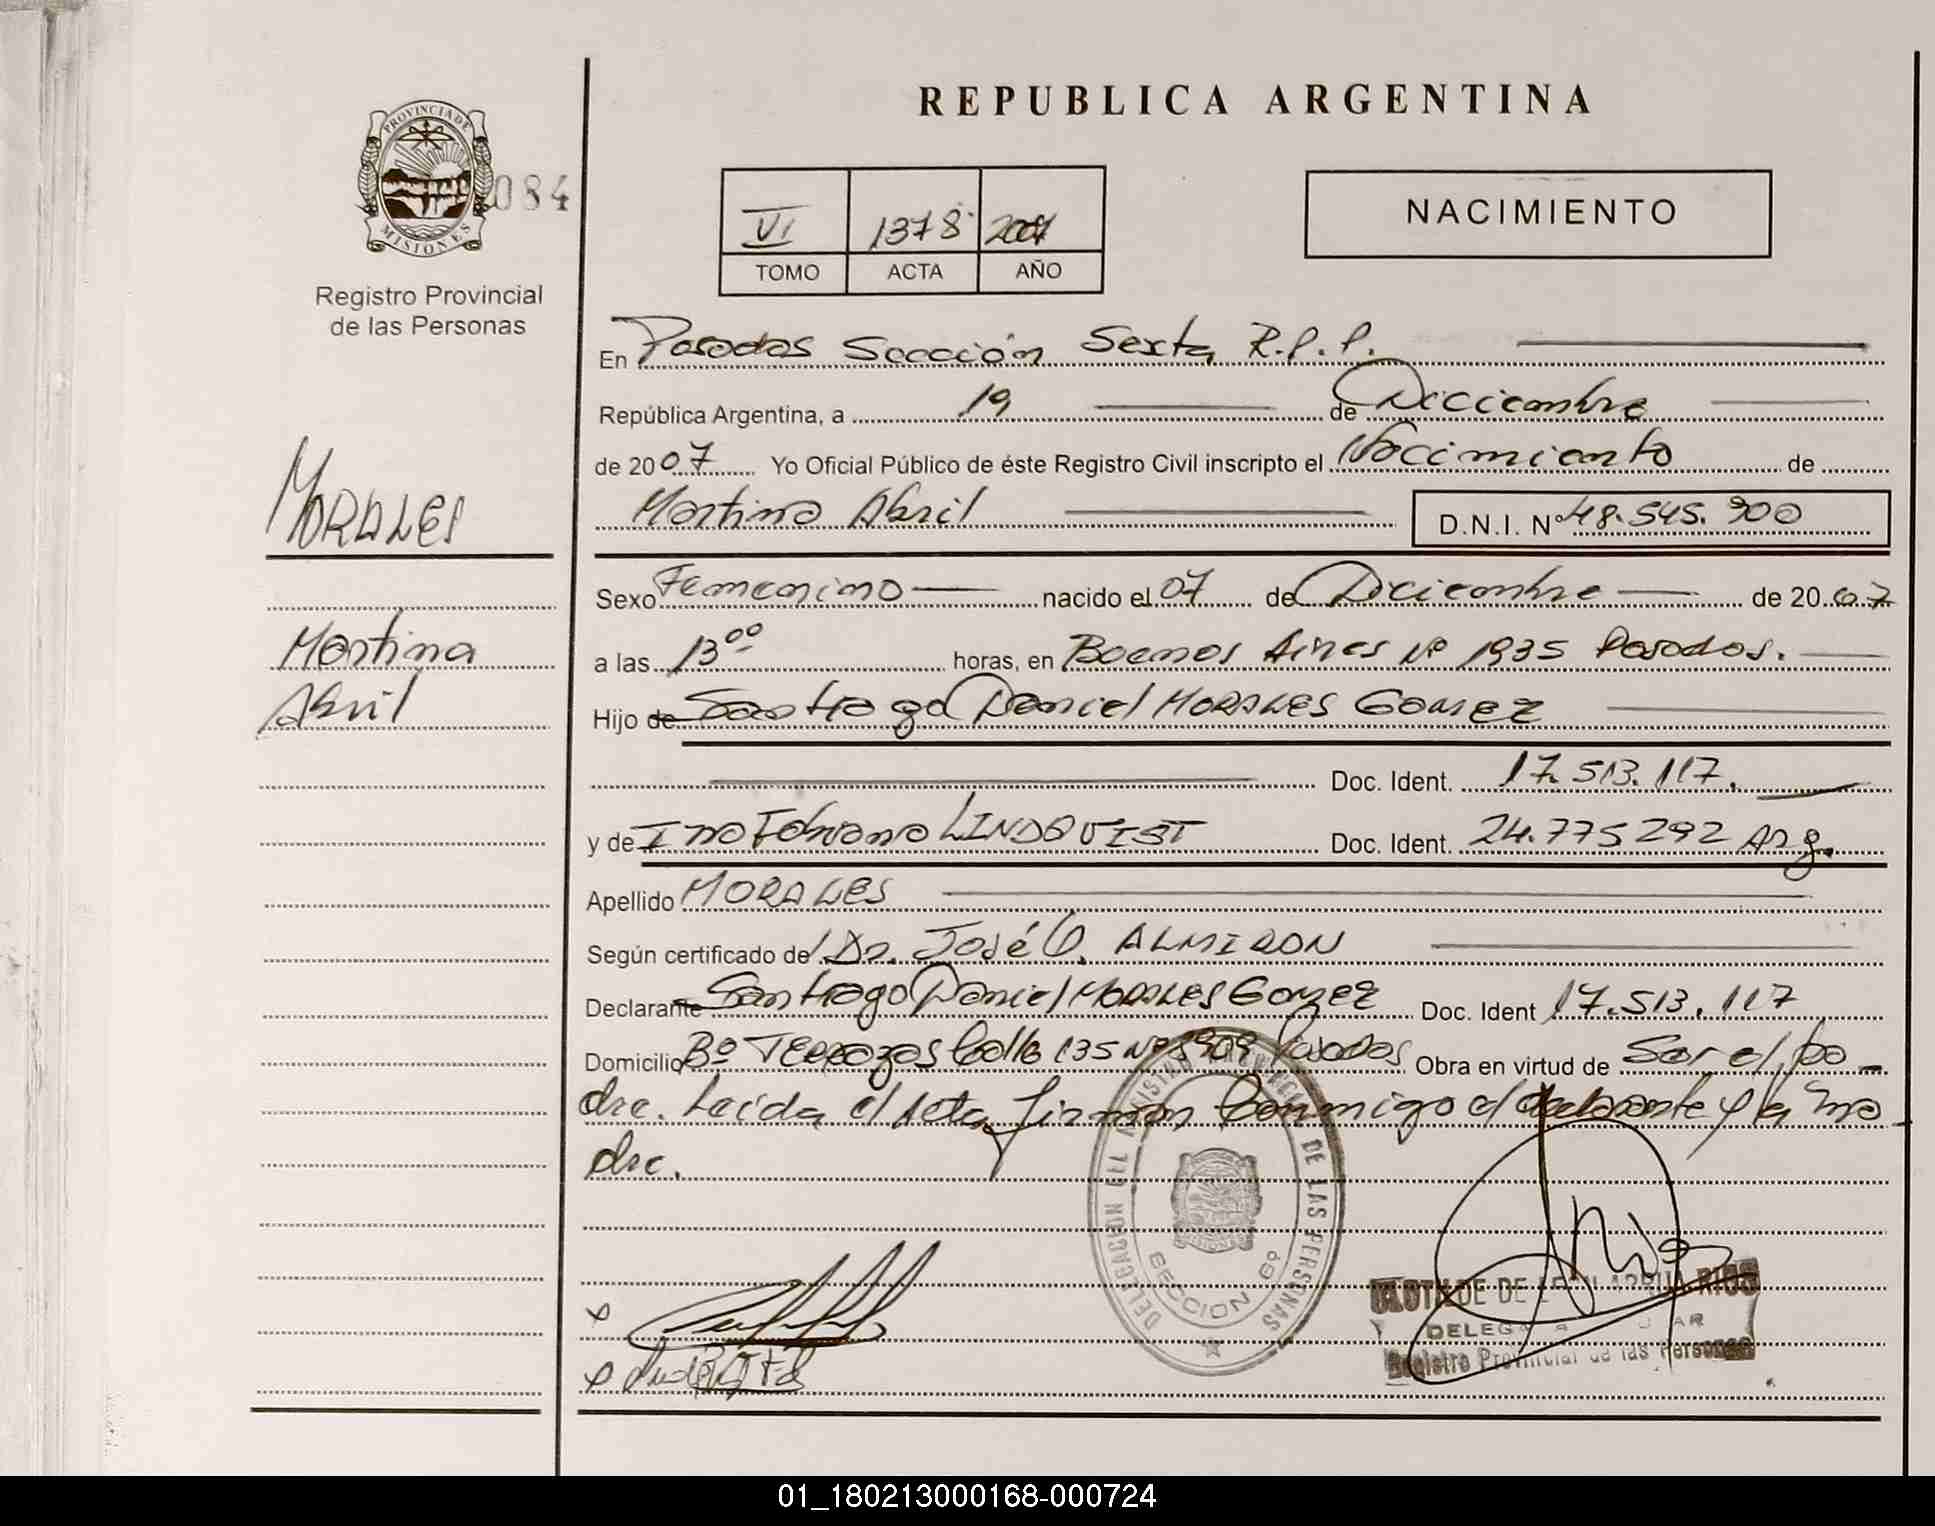 REPUBLICA ARGENTINA
PROVINCIA DE
MISIONES
084
Registro Provincial
de las Personas
VI 1378 2007
TOMO ACTA AÑO
NACIMIENTO
En Posadas Sección Sexta R.P.P.
República Argentina, a 19 de Diciembre
de 2007 Yo Oficial Público de éste Registro Civil inscripto el Nacimiento de
Martina Abril D.N.I. Nº 48.545.900
MORALES
Martina
Abril
Sexo Femenino nacido el 07 de Diciembre de 2007
a las 13 00 horas, en Buenos Aires Nº 1935 Posadas.
Hijo de Santiago Daniel MORALES GOMEZ
Doc. Ident. 17.513.117.
y de Ina Fabiana LINDQVIST Doc. Ident. 24.775292 Arg.
Apellido MORALES
Según certificado de Dr. José O. ALMIRON
Declarante Santiago Daniel MORALES GOMEZ Doc. Ident 17.513.117
Domicilio Bº TERRAZAS Calle 135 Nº Posadas Obra en virtud de Ser el pa-
dre. Leida el Acta, firman Conmigo el declarante y la ma-
dre.
DELEGACION DEL REGISTRO PROVINCIAL DE LAS PERSONAS
SECCION 6º
CLOTILDE DE RIOS
DELEGADA
Registro Provincial de las Personas
01_180213000168-000724